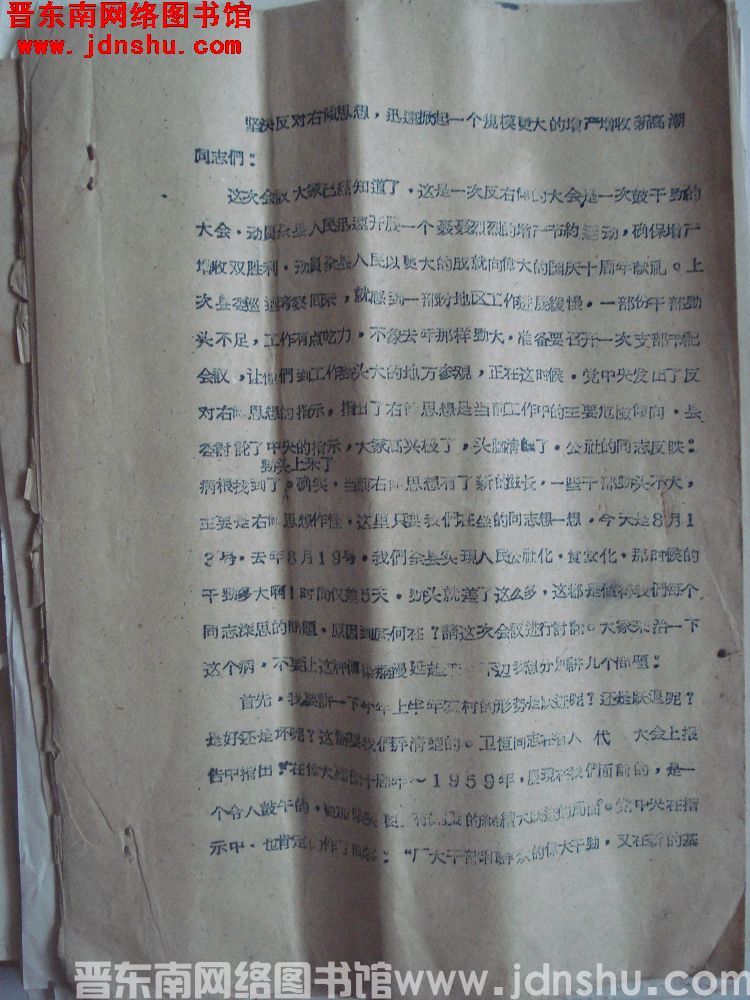 晋东南网络图书馆
www.jdnshu.com
坚决反对右倾思想，迅速掀起一个规模更大的增产增收新高潮
同志們：
这次会议大家已經知道了，这是一次反右倾的大会是一次鼓干劲的
大会，动員全县人民迅速开展一个轰轰烈烈的增产节約运动，确保增产
增收双胜利，动員全县人民以更大的成就向偉大的国庆十周年献礼。上
次县委巡迴 回来，就感到一部份地区工作进展緩慢，一部份干部劲
头不足，工作有点吃力，不象去年那样劲大，准备要召开一次支部书記
会议，让他們到工作劲头大的地方参观，正在这时候，党中央发出了反
对右倾思想的指示，指出了右倾思想是当前工作中的主要危险倾向，县
委討論了中央的指示，大家高兴极了，头脑清醒了。公社的同志反映：
劲头上来了
病根找到了。确实，当前右倾思想有了新的滋长，一些干部劲头不大，
主要是右倾思想作怪，这里只要我們在座的同志想一想，今天是8月1
3号，去年8月19号，我們全县实現人民公社化，食堂化，那时候的
干劲多大啊！时間仅差5天，劲头就差了这么多，这都是值得我們每个
同志深思的問題，原因到底何在？請这次会议进行討論。大家来治一下
这个病，不要让这种傳染病慢延起来 下边我想分別讲几个問題：
首先，我要讲一下今年上半年农村的形势是跃进呢？还是跃退呢？
是好还是坏呢？这需要我們弄清楚的。卫恒同志在省人 代 大会上报
告中指出：在偉大建国十周年～1959年，展現在我們面前的，是一
个令人鼓午的，更加 的繼續大跃进的局面。党中央在指
示中，也肯定的作了回答：“广大干部和群众的偉大干劲，又在新的基
晋东南网络图书馆www.jdnshu.com